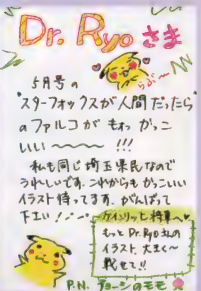 Dr. Ryo さま
らぶ〜
5月号の
"スターフォックスが人間だったら"
のファルコがもぉっかっこ
いい〜〜〜 !!!
私も同じ埼玉県民なので
うれしいです。これからもかっこいい
イラスト待ってます。がんばって
下さい!
もっとDr.Ryoさんの
イラスト、大きく〜
載せて!!
P.N.
のモモ